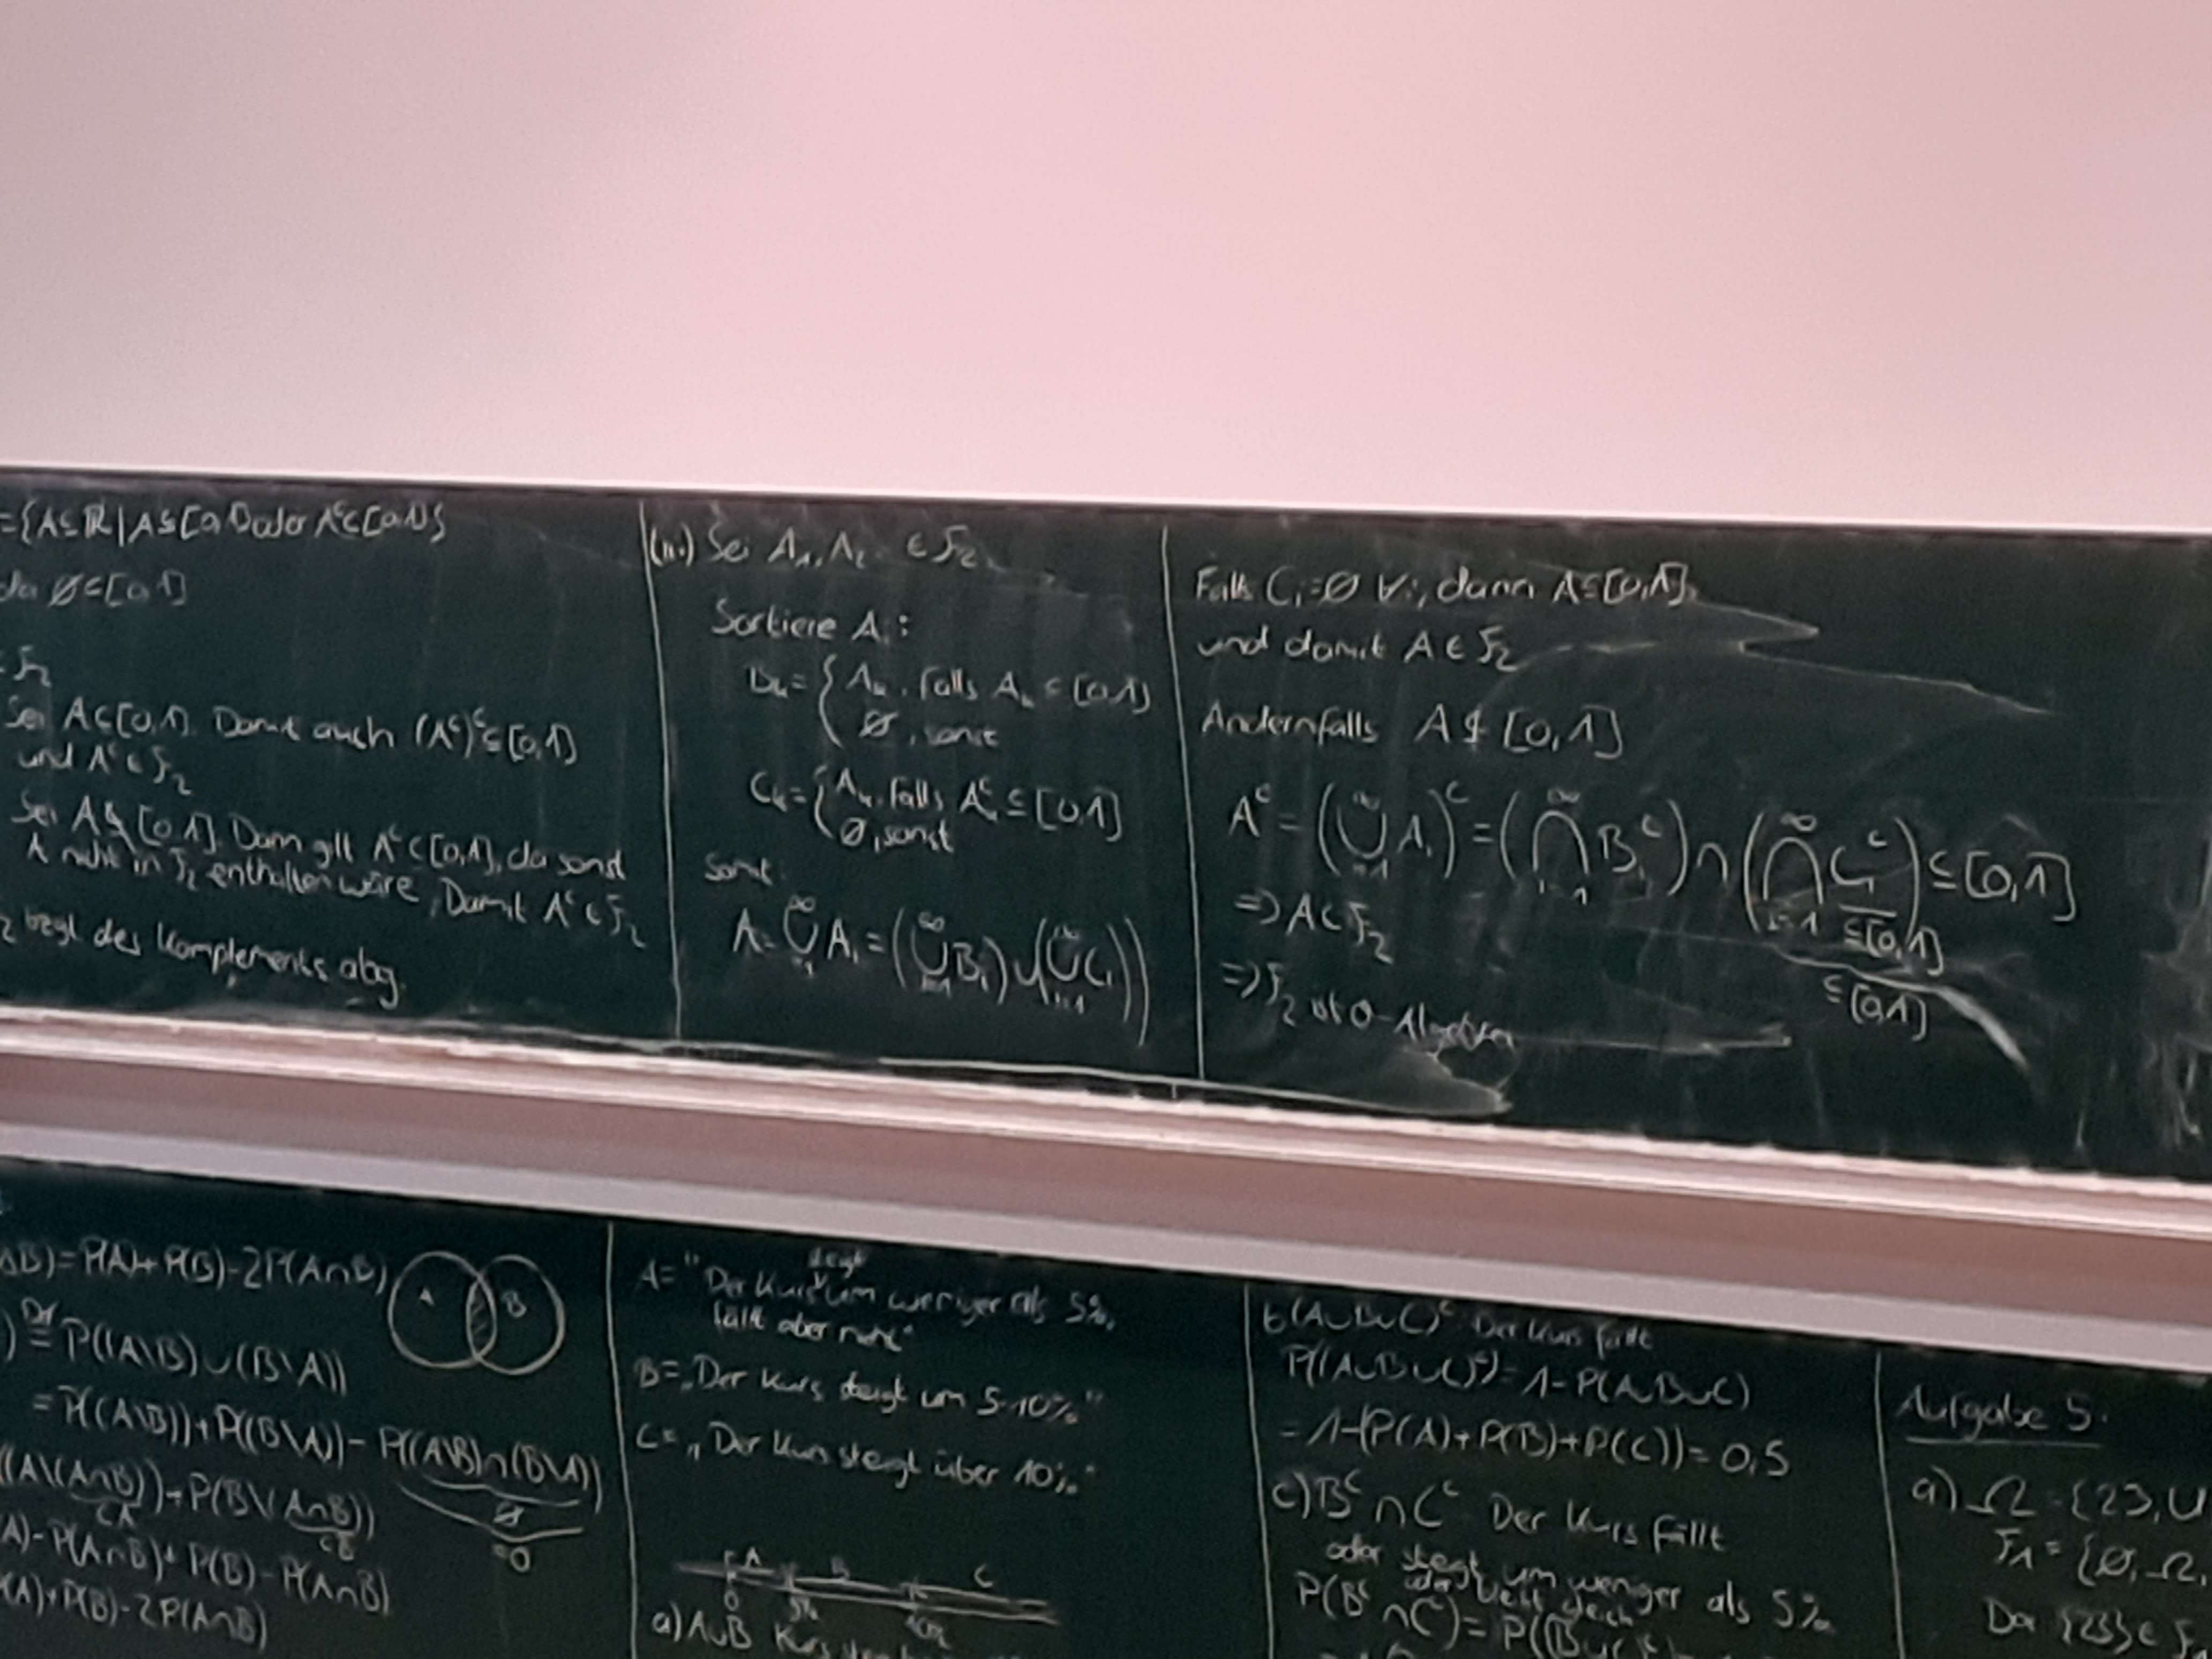 ={A⊆ℝ|A⊆[0,1] oder Aᶜ⊆[0,1]}
da ∅⊆[0,1]
F₂
Sei A⊆[0,1]. Damit auch (Aᶜ)ᶜ⊆[0,1]
und Aᶜ∈F₂
Sei A⊈[0,1]. Dann gilt Aᶜ⊂[0,1], da sonst
A nicht in F₂ enthalten wäre, Damit Aᶜ∈F₂
bzgl des Komplements abg.
Sei A₁,A₂.. ∈F₂
Sortiere Aᵢ:
Bₖ={Aₖ, falls Aₖ⊆[0,1]
∅, sonst
Cₖ={Aₖ, falls Aₖᶜ⊆[0,1]
∅, sonst
Somit:
A=⋃ᵢ₌₁^∞ Aᵢ=(⋃ᵢ₌₁^∞ Bᵢ)∪(⋃ᵢ₌₁^∞ Cᵢ))
Falls Cᵢ=∅ ∀i, dann A⊆[0,1],
und damit A∈F₂
Andernfalls A⊈[0,1]
Aᶜ=(⋃ᵢ₌₁^∞ Aᵢ)ᶜ=(⋂ᵢ₌₁^∞ Bᵢᶜ)∩(⋂ᵢ₌₁^∞ Cᵢᶜ)⊆[0,1]
⊆[0,1]
⊆[0,1]
=>A∈F₂
=>F₂ ist σ-Algebra
ΔB)=P(A)+P(B)-2P(A∩B)
A B
) Def= P((A\B)∪(B\A))
=P((A\B))+P((B\A))-P((A\B)∩(B\A))
∅
=0
((A\(A∩B))+P(B\(A∩B))
⊆A ⊆B
A)-P(A∩B)+P(B)-P(A∩B)
(A)+P(B)-2P(A∩B)
steigt
A="Der Kurs um weniger als 5%,
fällt aber nicht"
B="Der Kurs steigt um 5-10%"
C="Der Kurs steigt über 10%"
A B C
0 5% 10%
a) A∪B Kurs
b(A∪B∪C)ᶜ Der Kurs fällt
P((A∪B∪C)ᶜ)=1-P(A∪B∪C)
=1-(P(A)+P(B)+P(C))=0,5
c) Bᶜ∩Cᶜ Der Kurs fällt
oder steigt um weniger als 5%
oder bleibt gleich
P(Bᶜ∩Cᶜ)=P((B∪C)ᶜ)
Aufgabe 5:
a) Ω={23,U
F₁={∅,Ω,
Da {23}∈